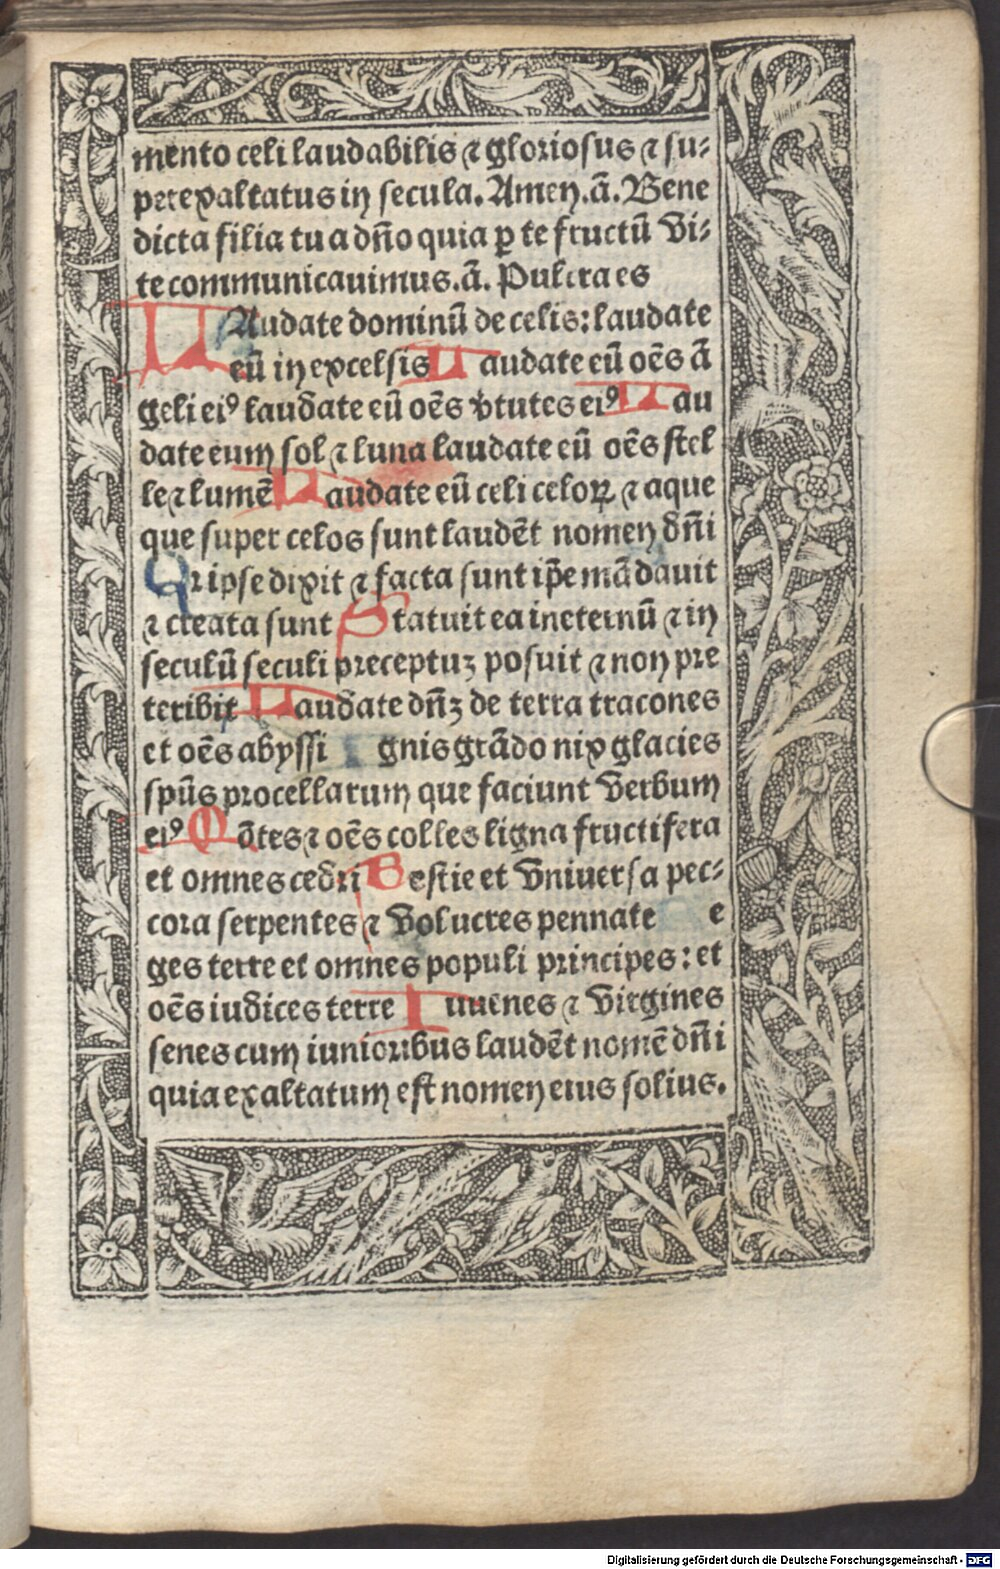 mento celi laudabilis ⁊ gloriosus ⁊ su⸗
perexaltatus in secula. Amen. ā. Bene
dicta filia tu a dño quia ꝑ te fructū vi⸗
te communicavimus. ā. Pulcra es
LAudate dominū de celis: laudate
eū in excelsis Laudate eū oēs ā
geli eiꝰ laudate eū oēs ꝟtutes eiꝰ Lau
date eum sol ⁊ luna laudate eū oēs stel
le ⁊ lumē Laudate eū celi celoꝝ ⁊ aque
que super celos sunt laudēt nomen dñi
Qr ipse dixit ⁊ facta sunt ip̄e mādavit
⁊ creata sunt Statuit ea in eternū ⁊ in
seculū seculi preceptuꝫ posuit ⁊ non pre
teribit Laudate dñꝫ de terra tracones
et oēs abyssi Ignis grādo nix glacies
spūs procellarum que faciunt verbum
eiꝰ Mōtes ⁊ oēs colles ligna fructifera
et omnes cedri Bestie et vniversa pec⸗
cora serpentes ⁊ volucres pennate e
ges terre et omnes populi principes: et
oēs iudices terre Iuuenes ⁊ virgines
senes cum iunioribus laudēt nomē dñi
quia exaltatum est nomen eius solius.
Digitalisierung gefördert durch die Deutsche Forschungsgemeinschaft - DFG